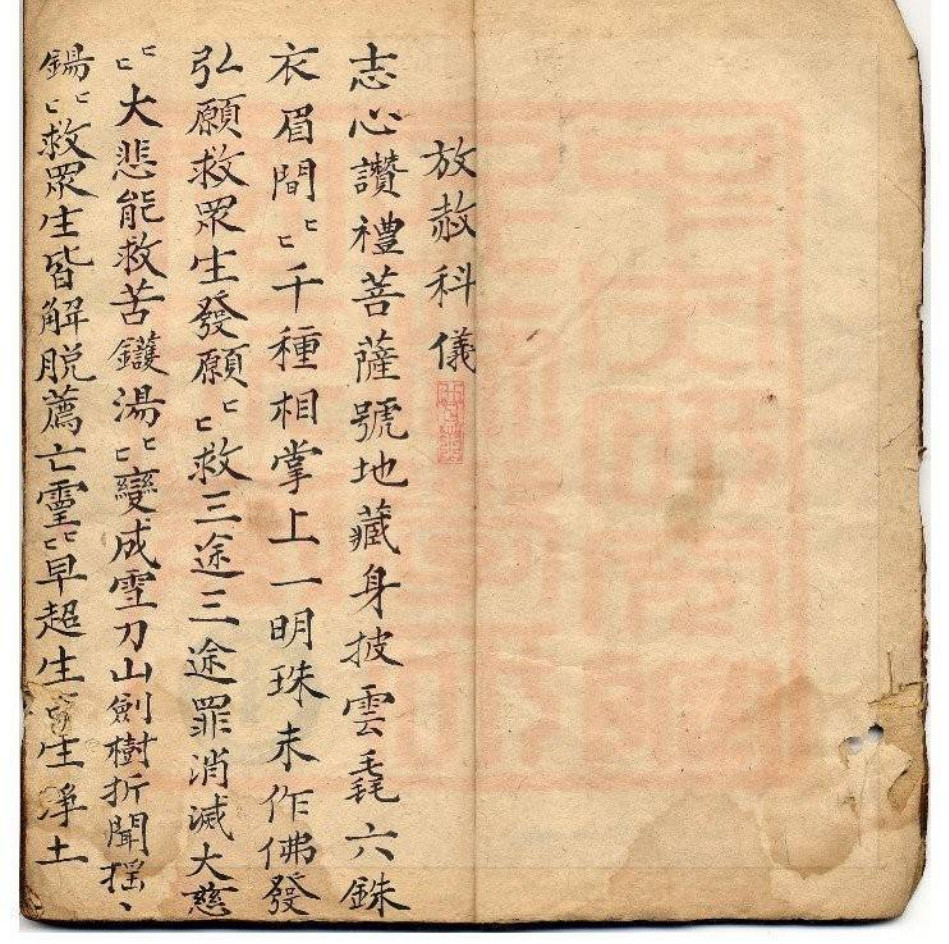 放赦科儀
志心讚禮菩薩號地藏身披雲毳六銖
衣眉間〻千種相掌上一明珠未作佛發
弘願救眾生發願〻救三途三途罪消滅大慈
〻大悲能救苦鑊湯〻變成雪刀山劍樹折聞搖、
錫〻救眾生皆解脱薦亡靈〻早超生 生淨土